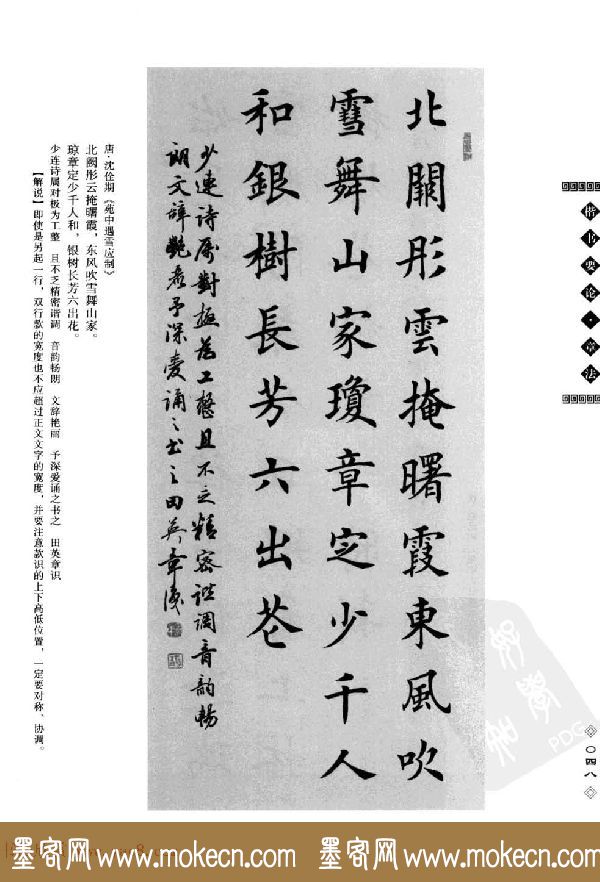 楷书要论·章法
〇四八
北闕彤雲掩曙霞東風吹
雪舞山家瓊章定少千人
和銀樹長芳六出花
少連詩属對極為工整且不乏精密諧調音韵暢
朗文辞艷麗予深愛誦之书之田英章識
唐·沈佺期《苑中遇雪应制》
北阙彤云掩曙霞，东风吹雪舞山家。
琼章定少千人和，银树长芳六出花。
少连诗属对极为工整 且不乏精密谐调 音韵畅朗 文辞艳丽 予深爱诵之书之 田英章识
【解说】即使是另起一行，双行款的宽度也不应超过正文文字的宽度，并要注意款识的上下高低位置，一定要对称、协调。
PDG
墨客网 www.mokecn.com 墨客网 www.mokecn.com